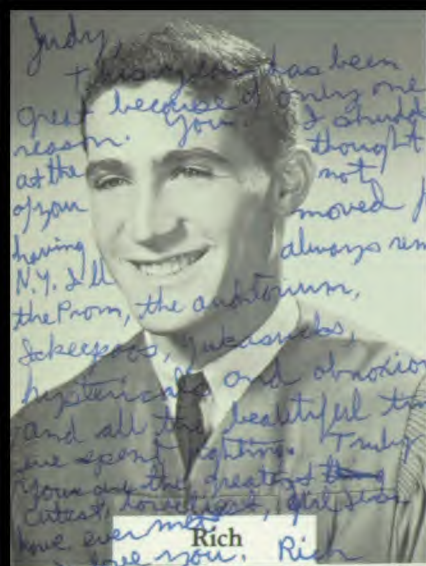 Judy
This year has been
great because of only one
reason. You. I shudd
at the thought
of you not
having moved
N.Y. I'll always rem
the Prom, the auditorium,
hystericals and obnoxiou
and all the beautiful tim
we spent fighting. Truly
your are the greatest thing
cutest, loveliest, girl I
have ever met
love you. Rich
Rich